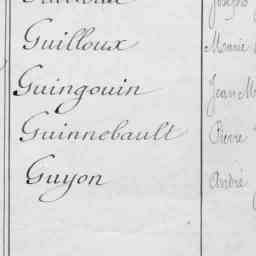 Guilloux
Guingouin Jean M
Guinnebault Pierre
Guyon André